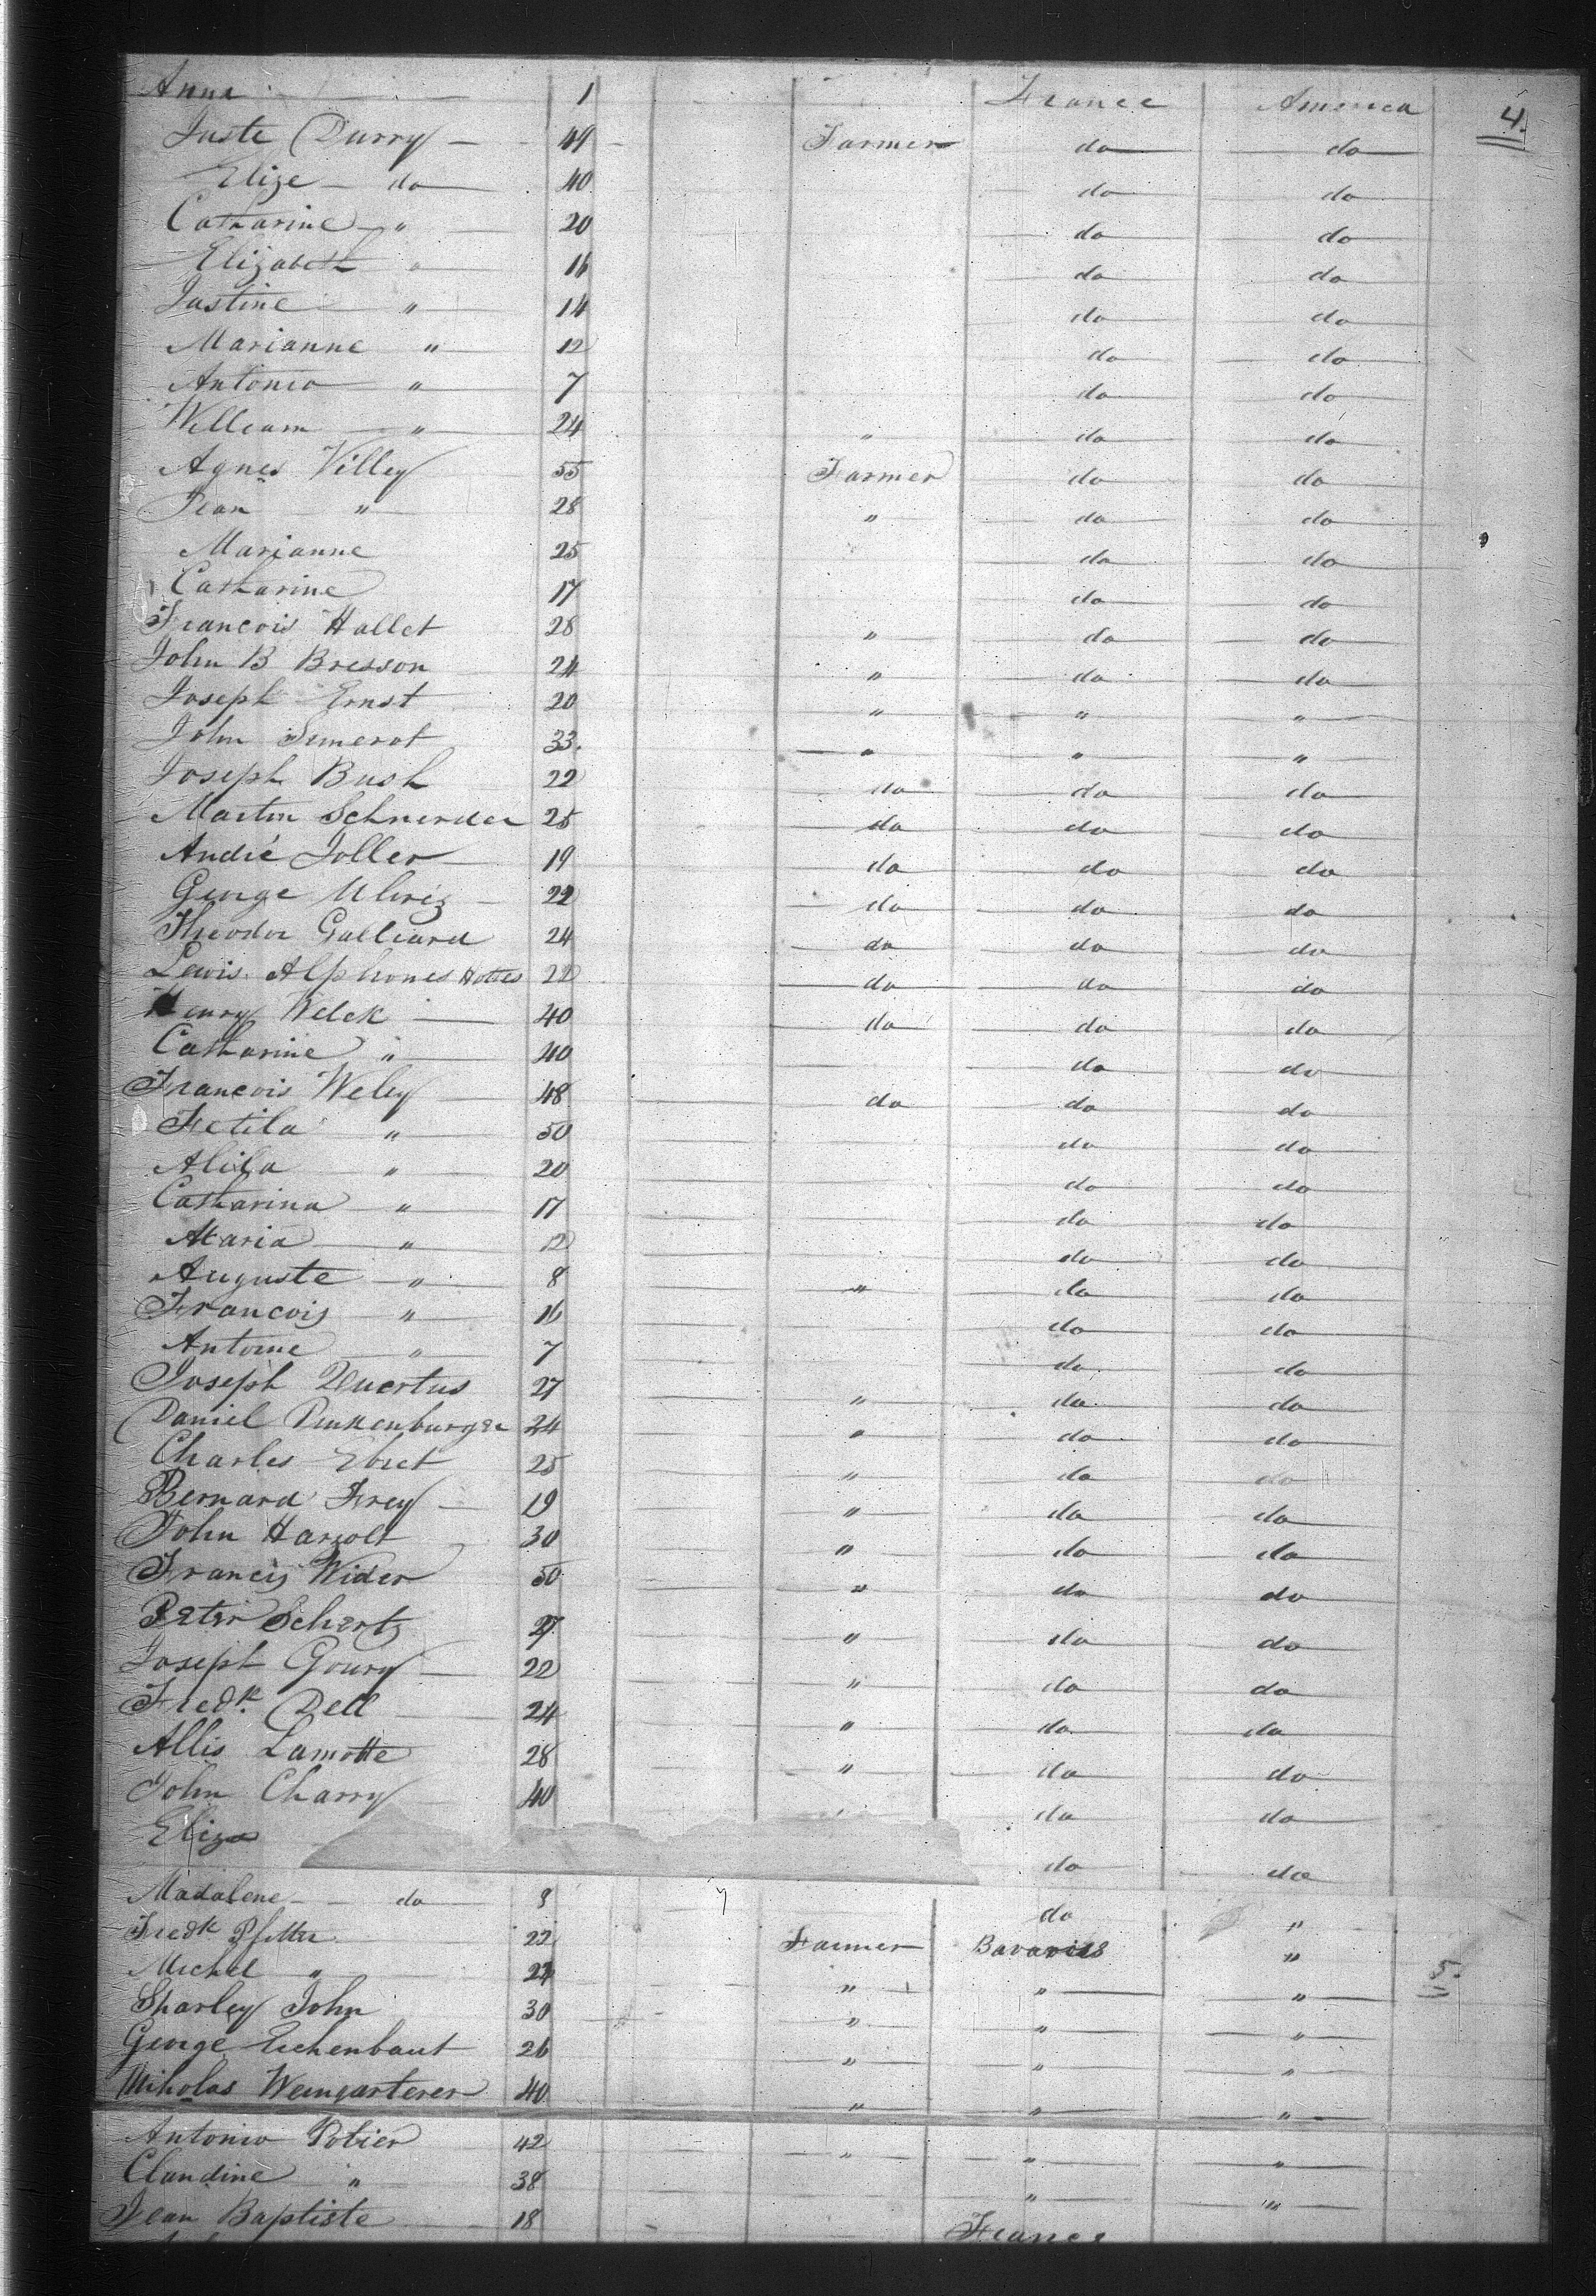 Anna 1 France America 4.
Juste Durry 49 Farmer do do
Elize do 40 do do
Catharine " 20 do do
Elizabeth " 16 do do
Justine " 14 do do
Marianne " 12 do do
Antonio " 7 do do
William " 24 " do do
Agnes Villey 55 Farmer do do
Jean " 28 " do do
Marianne 25 do do
Catharine 17 do do
Francois Hallet 28 " do do
John B Bresson 24 " do do
Joseph Ernst 20 " " "
John Simerot 33. " " "
Joseph Bush 22 do do do
Martin Schneider 25 do do do
André Joller 19 do do do
George Ulrig 22 do do do
Theodor Galliard 24 do do do
Lewis Alphones 22 do do do
Henry Welck 40 do do do
Catharine " 40 do do
Francois Weley 48 do do do
Fetila " 50 do do
Alila " 20 do do
Catharina " 17 do do
Maria " 12 do do
Auguste " 8 " do do
Francois " 16 do do
Antoine " 7 do do
Joseph Quertus 27 " do do
Daniel Pinkenburger 24 " do do
Charles Ebret 25 " do do
Bernard Frey 19 " do do
John Harzolt 30 " do do
Francis Wider 50 " do do
Peter Schertz 27 " do do
Joseph Goury 22 " do do
Fredk. Dell 24 " do do
Allis Lamotte 28 " do do
John Charry 40 " do do
Eliza do do
Madalene do 8 do "
Fredk Pfitter 22 Farmer Bavaria "
Michel " 24 " " " 5.
Sharley John 30 " " "
George Eichenbaut 26 " " "
Niholas Weingarterer 40 " " "
Antonio Pobier 42 " " "
Claudine " 38 " "
Jean Baptiste 18 France